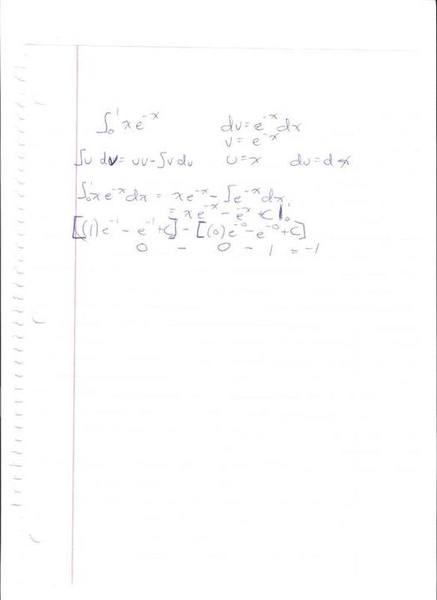 ∫₀¹ xe⁻ˣ dv = e⁻ˣ dx
v = e⁻ˣ
∫u dv = uv - ∫v du u = x du = dx
∫₀¹ xe⁻ˣ dx = xe⁻ˣ - ∫e⁻ˣ dx
= xe⁻ˣ - e⁻ˣ + C |₀¹
[(1)e⁻¹ - e⁻¹ + C] - [(0)e⁻⁰ - e⁻⁰ + C]
0 - 0 - 1 = -1